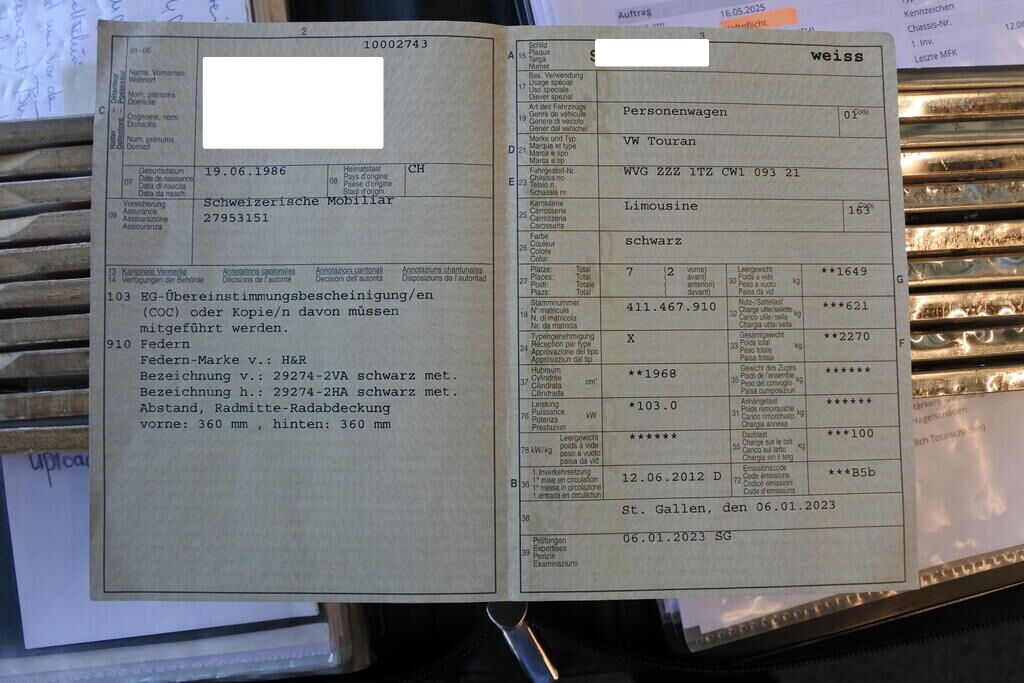 Auftrag
16.05.2025
Haftpflicht
Kennzeichen
Chassis-Nr.
1. Inv.
Letzte MFK
12.0
2
10002743
01-06
Name, Vornamen
Wohnort
Nom, prénoms
Domicile
Cognome, nomi
Domicilio
Num, prenums
Domicil
C
07 Geburtsdatum
Date de naissance
Data di nascita
Data da nasch.
19.06.1986
08 Heimatstaat
Pays d'origine
Paese d'origine
Stadi d'origin
CH
09 Versicherung
Assurance
Assicurazione
Assicuranza
Schweizerische Mobiliar
27953151
13 Kantonale Vermerke Annotations cantonales Annotazioni cantonali Annotaziuns chantunalas
14 Verfügungen der Behörde Décisions de l'autorité Decisioni dell'autorità Disposiziuns da l'autoritad
103 EG-Übereinstimmungsbescheinigung/en
(COC) oder Kopie/n davon müssen
mitgeführt werden.
910 Federn
Federn-Marke v.: H&R
Bezeichnung v.: 29274-2VA schwarz met.
Bezeichnung h.: 29274-2HA schwarz met.
Abstand, Radmitte-Radabdeckung
vorne: 360 mm , hinten: 360 mm
3
A 15 Schild
Plaque
Targa
Numer
S
weiss
17 Bes. Verwendung
Usage spécial
Uso speciale
Diever spezial
19 Art des Fahrzeugs
Genre de véhicule
Genere di veicolo
Gener dal vehichel
Personenwagen
01
Code
D 21 Marke und Typ
Marque et type
Marca e tipo
Marca e tip
VW Touran
E 23 Fahrgestell-Nr.
Châssis no
Telaio n.
Schassis nr.
WVG ZZZ 1TZ CW1 093 21
25 Karosserie
Carrosserie
Carrozzeria
Carossaria
Limousine
163
Code
26 Farbe
Couleur
Colore
Color
schwarz
27 Plätze: Total
Places: Total
Posti: Totale
Plazs: Total
7
2
vorne)
avant)
anteriori)
davant)
30 Leergewicht
Poids à vide
Peso a vuoto
Paisa da vid
kg
**1649
G
18 Stammnummer
N° matricule
N. di matricola
Nr. da matricla
411.467.910
32 Nutz-/Sattellast
Charge utile/sellette
Carico utile/sella
Chargia utila/sella
kg
***621
24 Typengenehmigung
Réception par type
Approvazione del tipo
Approvaziun dal tip
X
33 Gesamtgewicht
Poids total
Peso totale
Paisa totala
kg
**2270
F
37 Hubraum
Cylindrée
Cilindrata
Cilindrada
cm³
**1968
35 Gewicht des Zuges
Poids de l'ensemble
Peso del convoglio
Paisa cumposiziun
kg
******
76 Leistung
Puissance
Potenza
Prestaziun
kW
*103.0
31 Anhängelast
Poids remorquable
Carico rimorchiato
Chargia annexa
kg
******
78 kW/kg
Leergewicht
poids à vide
peso a vuoto
paisa da vid
******
55 Dachlast
Charge sur le toit
Carico sul tetto
Chargia sin il tetg
kg
***100
B 36 1. Inverkehrsetzung
1re mise en circulation
1a messa in circolazione
1. entrada en circulaziun
12.06.2012 D
72 Emissionscode
Code émissions
Codice emissioni
Code d'emissiuns
***B5b
38
St. Gallen, den 06.01.2023
39 Prüfungen
Expertises
Perizie
Examinaziuns
06.01.2023 SG
Hagelschäden
lich Totalschaden)